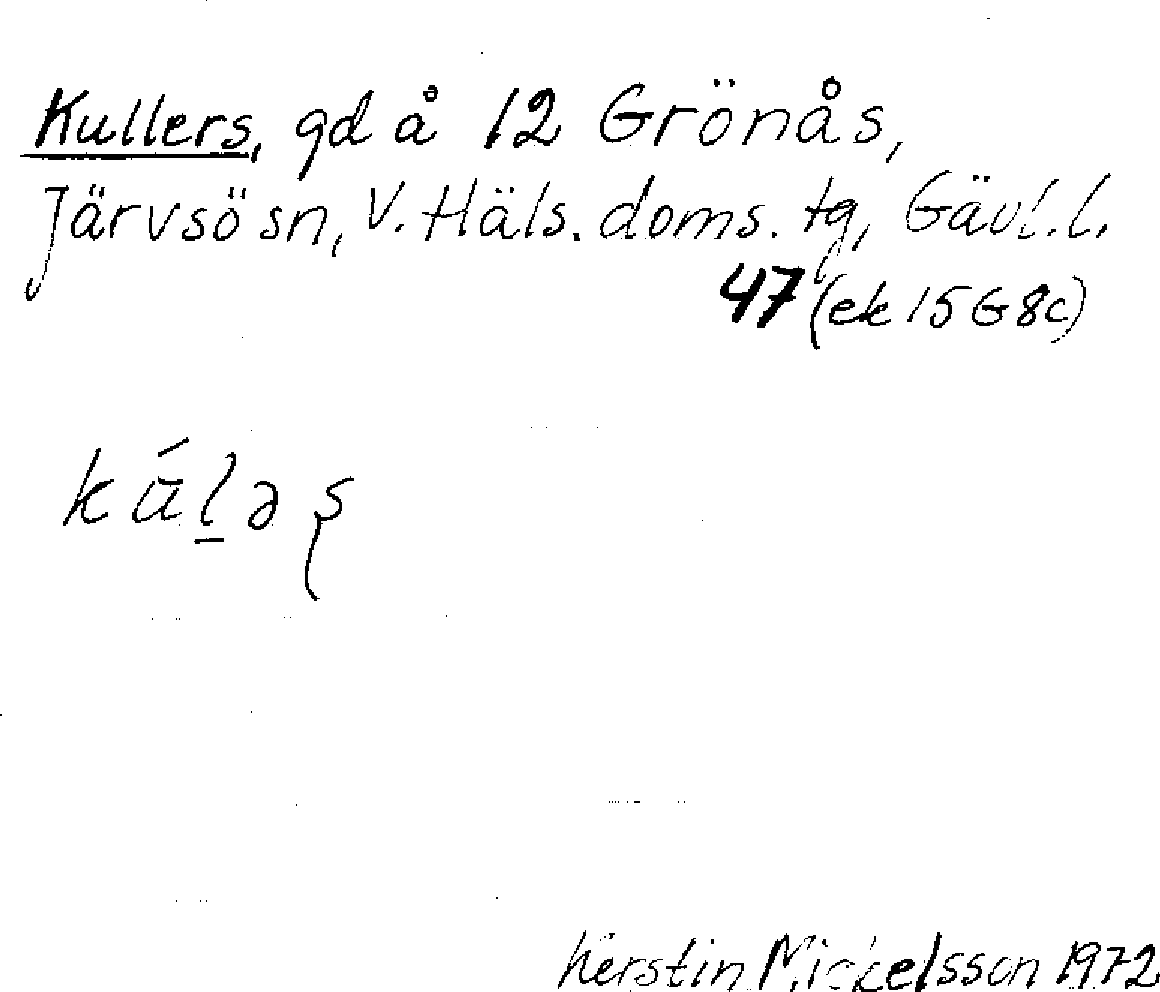 Kullers, gd å 12 Grönås,
Järvsö sn, V. Häls. doms. tg, Gävl. l.
47 (ek 15 G 8c)
kú̄l̲əş
Kerstin Mickelsson 1972